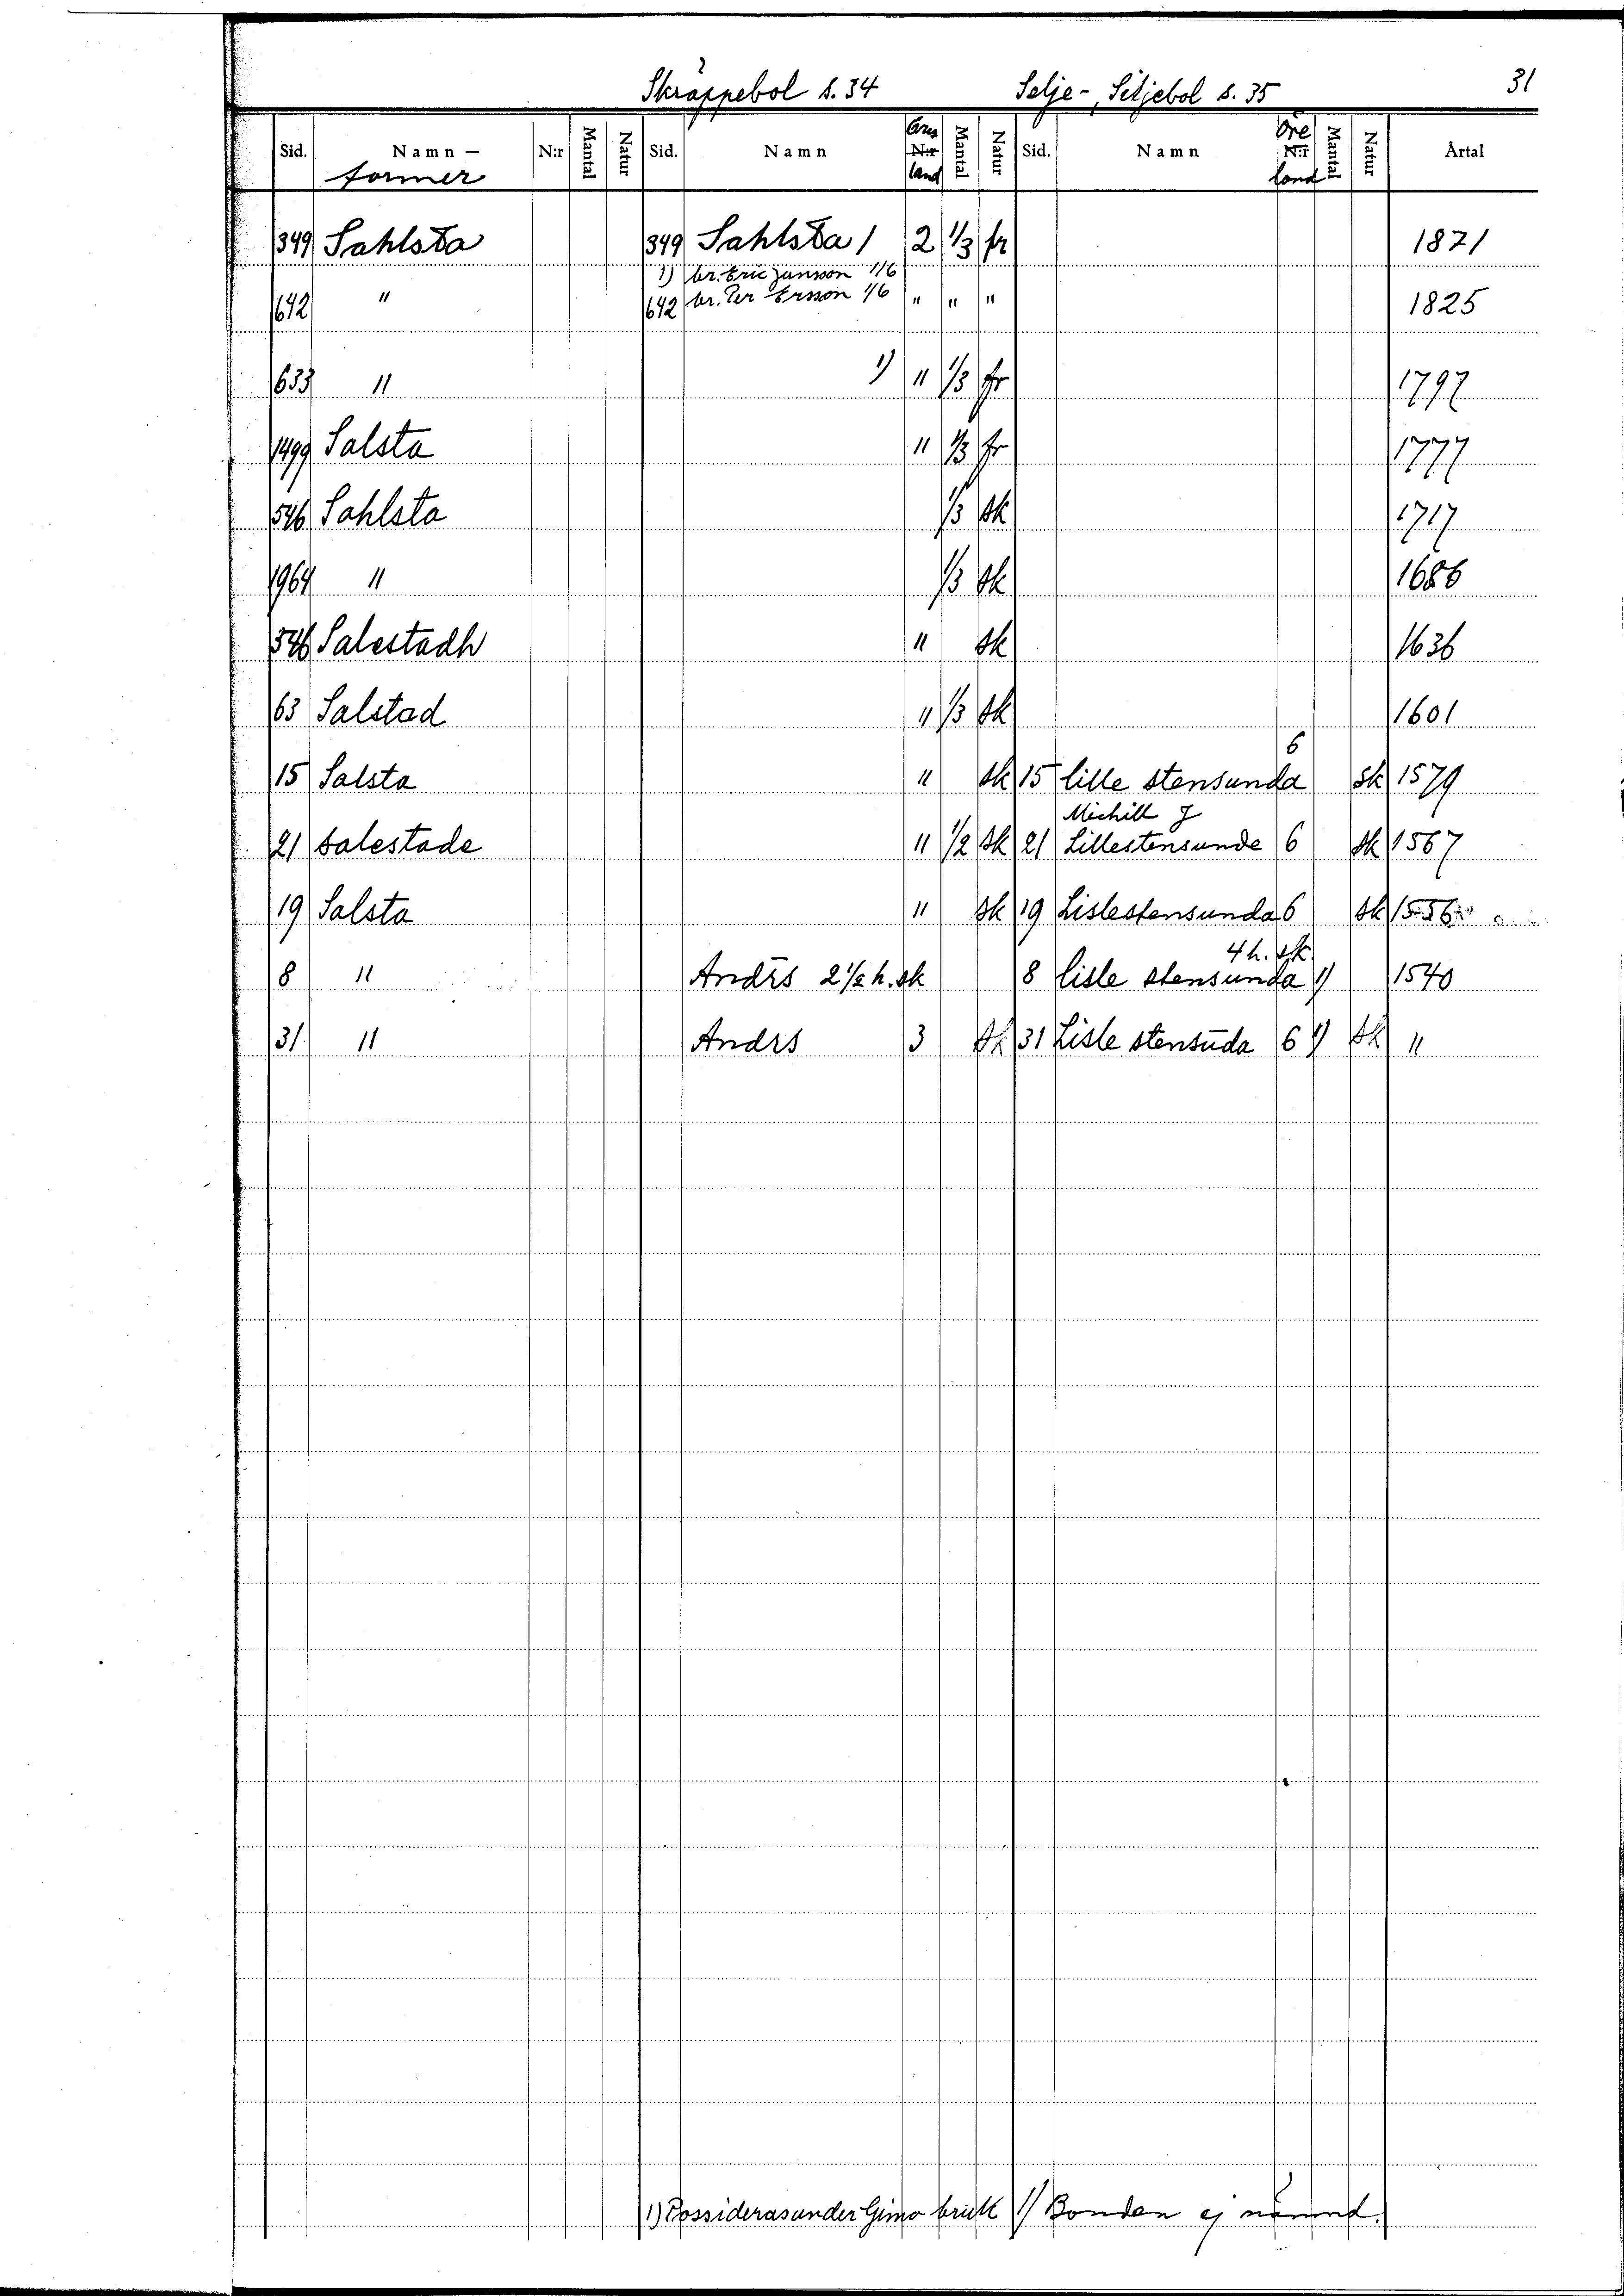 Skräppebol s. 34 Selje-, Siljebol s. 35 31
Sid. Namn - former N:r Mantal Natur Sid. Namn N:r land Mantal Natur Sid. Namn Öre N:r land Mantal Natur Årtal
349 Sahlsta 349 Sahlsta 1 2 1/3 fr 1871
1) br. Eric Jansson 1/6
642 " 642 br. Per Ersson 1/6 " " " 1825
633 " 1) " 1/3 fr 1797
1499 Salsta " 1/3 fr 1777
546 Sahlsta 1/3 sk 1717
1964 " 1/3 sk 1686
546 Salestadh " sk 1636
63 Salstad " 1/3 sk 1601
15 Salsta " sk 15 lille stensunda 6 sk 1579
Michill J
21 salestade " 1/2 sk 21 Lillestensunde 6 sk 1567
19 Salsta " sk 19 Lislestensunda 6 sk 1556
4 h. sk
8 " Andrs 2 1/2 h. sk 8 lisle stensunda 1) 1540
31 " Andrs 3 sk 31 Lisle stensūda 6 1) sk "
1) Possideras under Gimo bruk 1) Bonden ej nämnd.